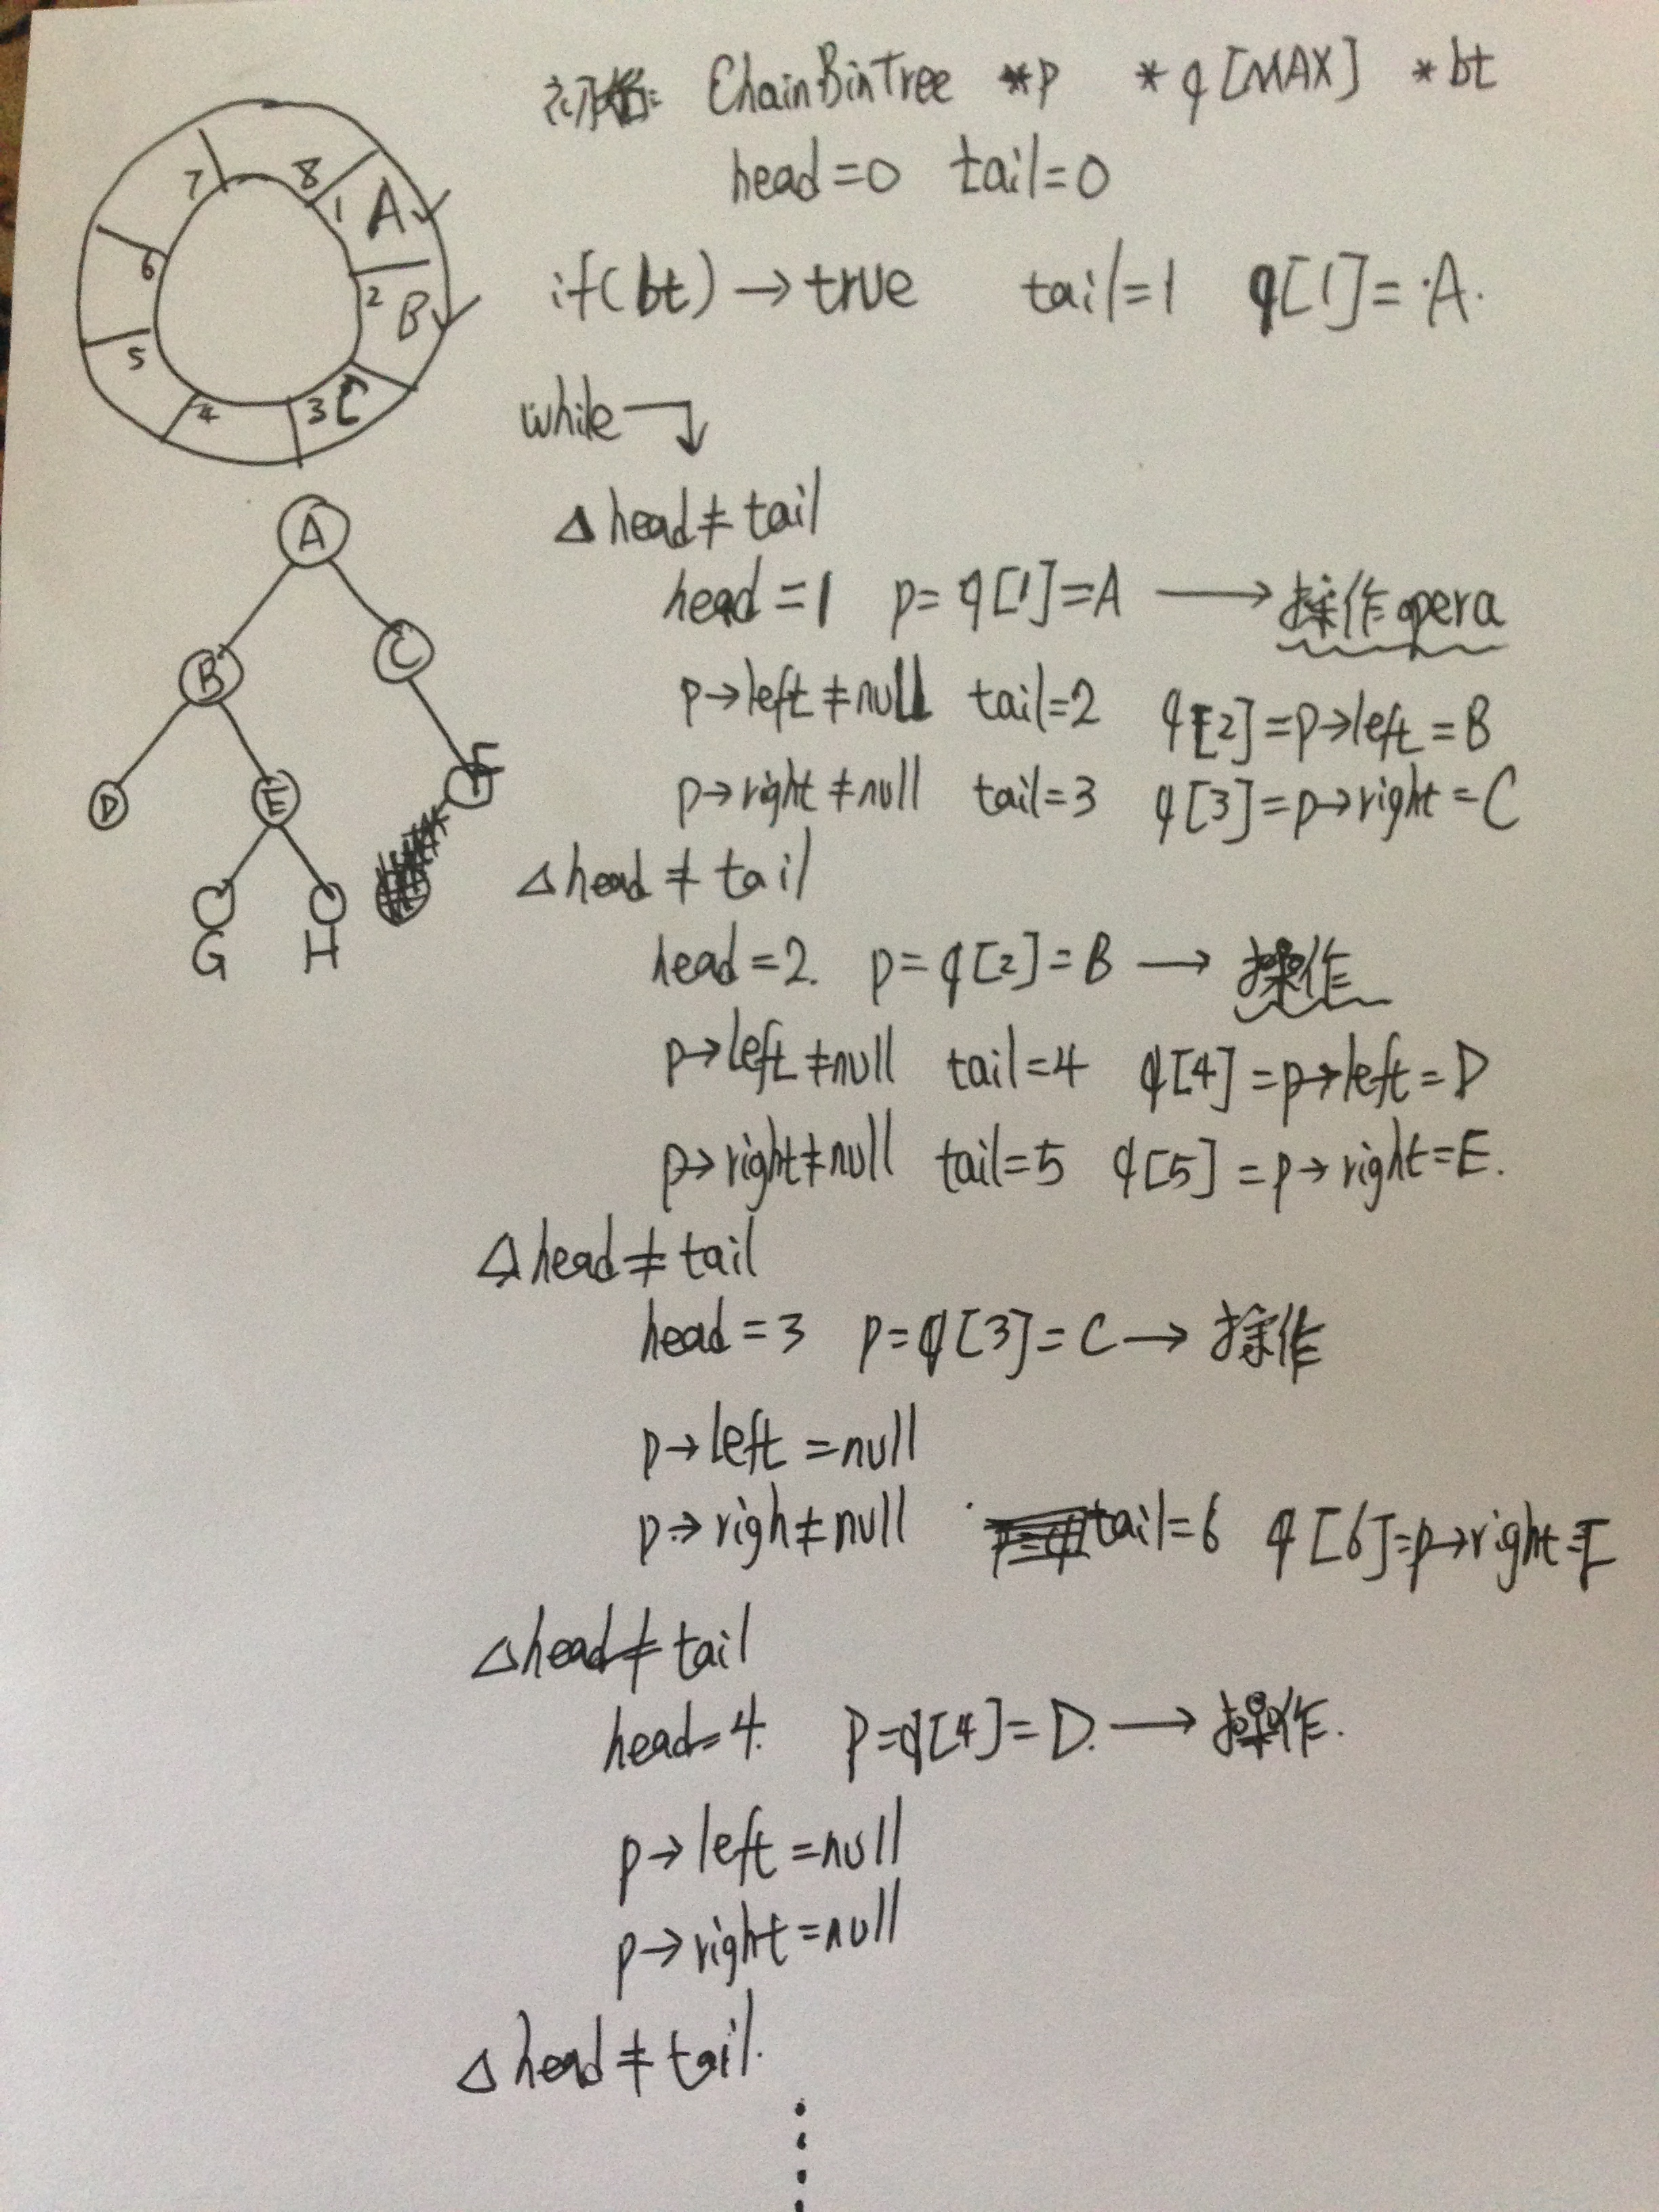 初始: ChainBinTree *p *q[MAX] *bt
head=0 tail=0
if(bt)→true tail=1 q[1]=A.
while
△head≠tail
head=1 p=q[1]=A → 操作opera
p→left≠null tail=2 q[2]=p→left=B
p→right≠null tail=3 q[3]=p→right=C
△head≠tail
head=2. p=q[2]=B → 操作
p→left≠null tail=4 q[4]=p→left=D
p→right≠null tail=5 q[5]=p→right=E.
△head≠tail
head=3 p=q[3]=C → 操作
p→left=null
p→righ≠null tail=6 q[6]=p→right=
△head≠tail
head=4. p=q[4]=D. → 操作.
p→left=null
p→right=null
△head≠tail.
7
8
1 A✓
6
2 B✓
5
4
3 C
A
B
C
D
E
F
G
H